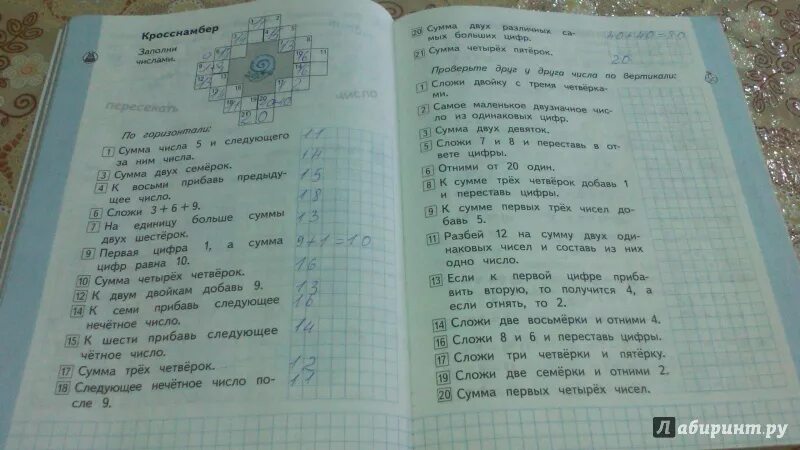 Кросснамбер
Заполни
числами.
пересекать
число
По горизонтали:
1 Сумма числа 5 и следующего
за ним числа.
11
3 Сумма двух семёрок.
14
4 К восьми прибавь предыду-
щее число.
15
6 Сложи 3+6+9.
18
7 На единицу больше суммы
двух шестёрок.
13
9 Первая цифра 1, а сумма
цифр равна 10.
9+1=10
10 Сумма четырёх четвёрок.
16
12 К двум двойкам добавь 9.
13
14 К семи прибавь следующее
нечётное число.
16
15 К шести прибавь следующее
чётное число.
14
17 Сумма трёх четвёрок.
12
18 Следующее нечётное число по-
сле 9.
11
20 Сумма двух различных са-
мых больших цифр.
40+40=80
21 Сумма четырёх пятёрок.
20
Проверьте друг у друга числа по вертикали:
1 Сложи двойку с тремя четвёрка-
ми.
2 Самое маленькое двузначное чис-
ло из одинаковых цифр.
3 Сумма двух девяток.
5 Сложи 7 и 8 и переставь в от-
вете цифры.
6 Отними от 20 один.
8 К сумме трёх четвёрок добавь 1
и переставь цифры.
9 К сумме первых трёх чисел до-
бавь 5.
11 Разбей 12 на сумму двух оди-
наковых чисел и составь из них
одно число.
13 Если к первой цифре приба-
вить вторую, то получится 4, а
если отнять, то 2.
14 Сложи две восьмёрки и отними 4.
16 Сложи 8 и 6 и переставь цифры.
17 Сложи три четвёрки и пятёрку.
19 Сложи две семёрки и отними 2.
20 Сумма первых четырёх чисел.
Лабиринт.ру